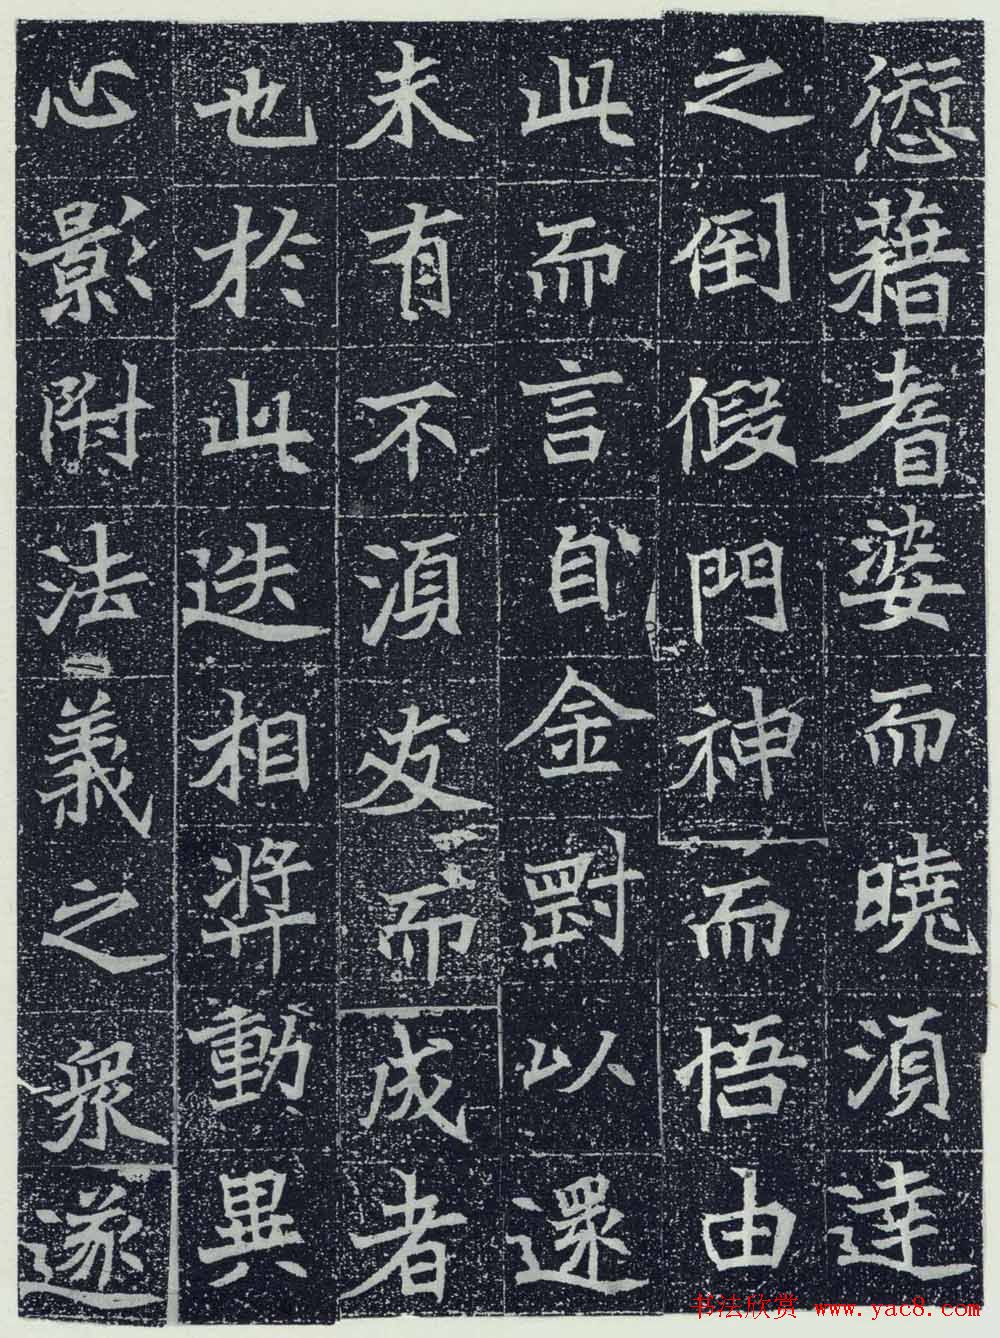 愆藉耆婆而曉湏達
之倒假門神而悟由
此而言自金罽以還
未有不湏友而成者
也於此迭相弉動異
心影附法義之衆遂
书法欣赏 www.yac8.com